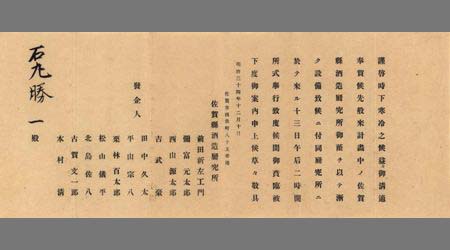 謹啓時下寒冷之候益々御清適
奉賀候先般來計畫中ノ佐賀
縣酒造研究所御蔭ヲ以テ漸
ク設備致候ニ付同研究所ニ
於テ來ル十三日午后二時開
所式擧行致度候間御賁臨被
下度御案内申上候草々敬具
明治三十四年十二月十日
佐賀市 町八十五番地
佐賀縣酒造研究所
前田新左工門
彌富元太郎
西山源太郎
吉武豪
發企人
田中久太
平山宗八
栗林百太郎
松山儀平
北島佐八
古賀文一郎
木村清
石丸勝一殿